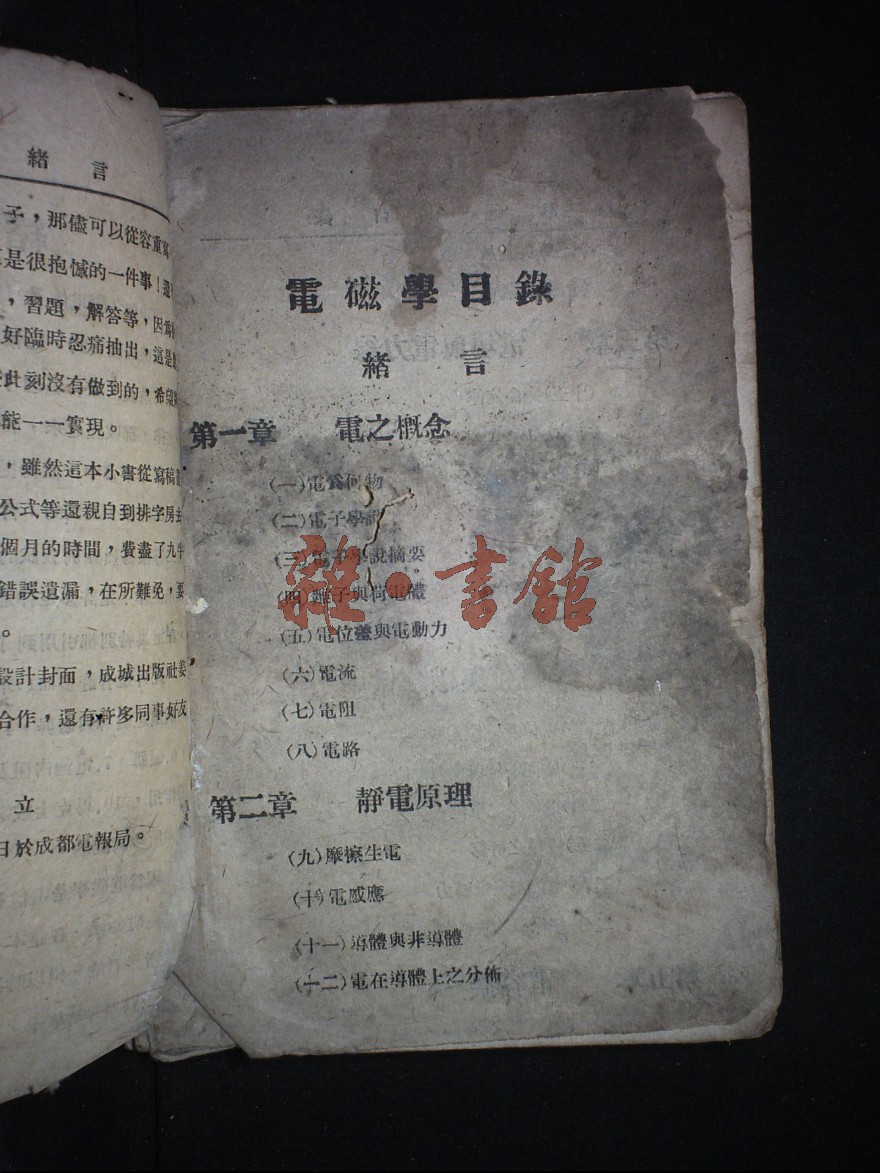 緒 言
子，那儘可以從容重寫
是很抱憾的一件事！還
，習題，解答等，因為
好臨時忍痛抽出，這是
此刻沒有做到的，希望
能一一實現。
，雖然這本小書從寫稿
公式等還親自到排字房去
個月的時間，費盡了九牛
錯誤遺漏，在所難免，要
。
設計封面，成城出版社姜
合作，還有許多同事好友
立
日於成都電報局。
電磁學目錄
緒 言
第一章 電之概念
(一)電為何物
(二)電子學說
(三)電子學說摘要
(四)離子與荷電體
(五)電位差與電動力
(六)電流
(七)電阻
(八)電路
第二章 靜電原理
(九)摩擦生電
(十)電感應
(十一)導體與非導體
(十二)電在導體上之分佈
雜·書館